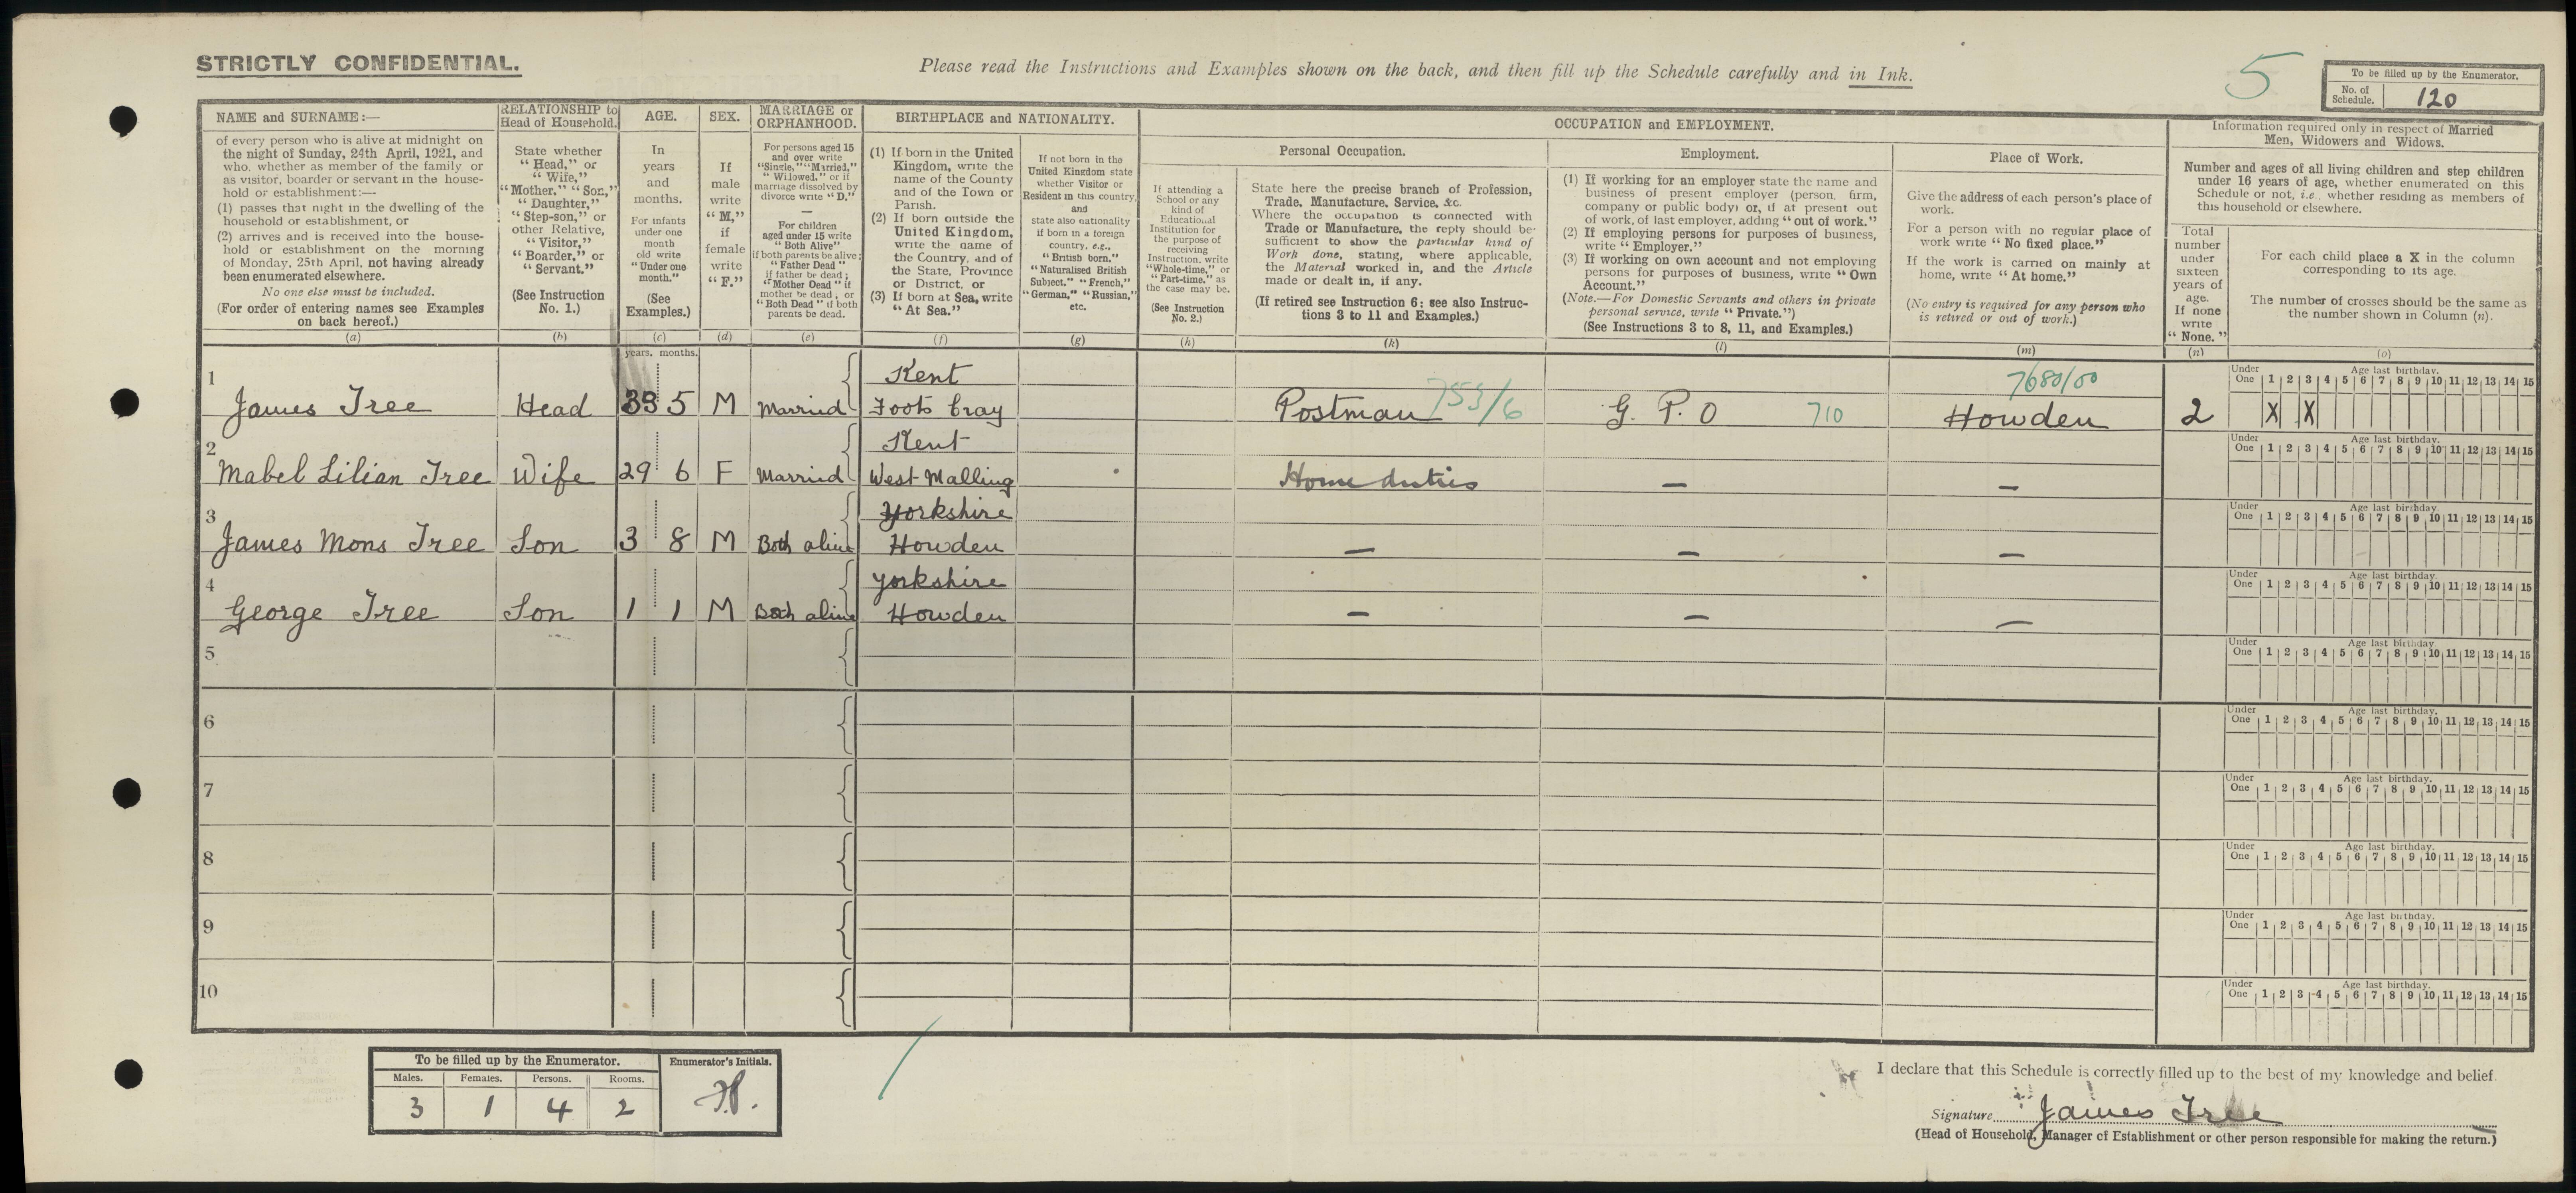 STRICTLY CONFIDENTIAL.
Please read the Instructions and Examples shown on the back, and then fill up the Schedule carefully and in Ink.
5
To be filled up by the Enumerator.
No. of Schedule. 120
NAME and SURNAME:—
of every person who is alive at midnight on
the night of Sunday, 24th April, 1921, and
who, whether as member of the family or
as visitor, boarder or servant in the house-
hold or establishment:—
(1) passes that night in the dwelling of the
household or establishment, or
(2) arrives and is received into the house-
hold or establishment on the morning
of Monday, 25th April, not having already
been enumerated elsewhere.
No one else must be included.
(For order of entering names see Examples
on back hereof.)
(a)
RELATIONSHIP to
Head of Household.
State whether
"Head," or
"Wife,"
"Mother," "Son,"
"Daughter,"
"Step-son," or
other Relative,
"Visitor,"
"Boarder," or
"Servant."
(See Instruction
No. 1.)
(b)
AGE.
In
years
and
months.
For infants
under one
month
old write
"Under one
month."
(See
Examples.)
(c)
SEX.
If
male
write
"M,"
if
female
write
"F."
(d)
MARRIAGE or
ORPHANHOOD.
For persons aged 15
and over write
"Single," "Married,"
"Widowed," or if
marriage dissolved by
divorce write "D."
—
For children
aged under 15 write
"Both Alive"
if both parents be alive;
"Father Dead"
if father be dead;
"Mother Dead" if
mother be dead; or
"Both Dead" if both
parents be dead.
(e)
BIRTHPLACE and NATIONALITY.
(1) If born in the United
Kingdom, write the
name of the County
and of the Town or
Parish.
(2) If born outside the
United Kingdom,
write the name of
the Country, and of
the State, Province
or District, or
(3) If born at Sea, write
"At Sea."
(f)
If not born in the
United Kingdom state
whether Visitor or
Resident in this country,
and
state also nationality
if born in a foreign
country, e.g.,
"British born."
"Naturalised British
Subject." "French,"
"German," "Russian,"
etc.
(g)
OCCUPATION and EMPLOYMENT.
Personal Occupation.
If attending a
School or any
kind of
Educational
Institution for
the purpose of
receiving
Instruction, write
"Whole-time," or
"Part-time," as
the case may be.
(See Instruction
No. 2.)
(h)
State here the precise branch of Profession,
Trade, Manufacture, Service, &c.
Where the occupation is connected with
Trade or Manufacture, the reply should be
sufficient to show the particular kind of
Work done, stating, where applicable,
the Material worked in, and the Article
made or dealt in, if any.
(If retired see Instruction 6; see also Instruc-
tions 3 to 11 and Examples.)
(k)
Employment.
(1) If working for an employer state the name and
business of present employer (person, firm,
company or public body) or, if at present out
of work, of last employer, adding "out of work."
(2) If employing persons for purposes of business,
write "Employer."
(3) If working on own account and not employing
persons for purposes of business, write "Own
Account."
(Note.—For Domestic Servants and others in private
personal service, write "Private.")
(See Instructions 3 to 8, 11, and Examples.)
(l)
Place of Work.
Give the address of each person's place of
work.
For a person with no regular place of
work write "No fixed place."
If the work is carried on mainly at
home, write "At home."
(No entry is required for any person who
is retired or out of work.)
(m)
Information required only in respect of Married
Men, Widowers and Widows.
Number and ages of all living children and step children
under 16 years of age, whether enumerated on this
Schedule or not, i.e., whether residing as members of
this household or elsewhere.
Total
number
under
sixteen
years of
age.
If none
write
"None."
(n)
For each child place a X in the column
corresponding to its age.
The number of crosses should be the same as
the number shown in Column (n).
(o)
years. months.
Under One Age last birthday. 1 2 3 4 5 6 7 8 9 10 11 12 13 14 15
1 James Tree Head 5 M Married Kent Foots Cray Postman 753/6 G. P. O 710 7680/00 Howden 2 X X
Under One Age last birthday. 1 2 3 4 5 6 7 8 9 10 11 12 13 14 15
2 Mabel Lilian Tree Wife 29 6 F Married Kent West Malling Home duties — —
Under One Age last birthday. 1 2 3 4 5 6 7 8 9 10 11 12 13 14 15
3 James Mons Tree Son 3 8 M Both alive Yorkshire Howden — — —
Under One Age last birthday. 1 2 3 4 5 6 7 8 9 10 11 12 13 14 15
4 George Tree Son 1 1 M Both alive Yorkshire Howden — — —
Under One Age last birthday. 1 2 3 4 5 6 7 8 9 10 11 12 13 14 15
5
Under One Age last birthday. 1 2 3 4 5 6 7 8 9 10 11 12 13 14 15
6
Under One Age last birthday. 1 2 3 4 5 6 7 8 9 10 11 12 13 14 15
7
Under One Age last birthday. 1 2 3 4 5 6 7 8 9 10 11 12 13 14 15
8
Under One Age last birthday. 1 2 3 4 5 6 7 8 9 10 11 12 13 14 15
9
Under One Age last birthday. 1 2 3 4 5 6 7 8 9 10 11 12 13 14 15
10
To be filled up by the Enumerator.
Males. Females. Persons. Rooms.
3 1 4 2
Enumerator's Initials.
I declare that this Schedule is correctly filled up to the best of my knowledge and belief.
Signature James Tree
(Head of Household, Manager of Establishment or other person responsible for making the return.)